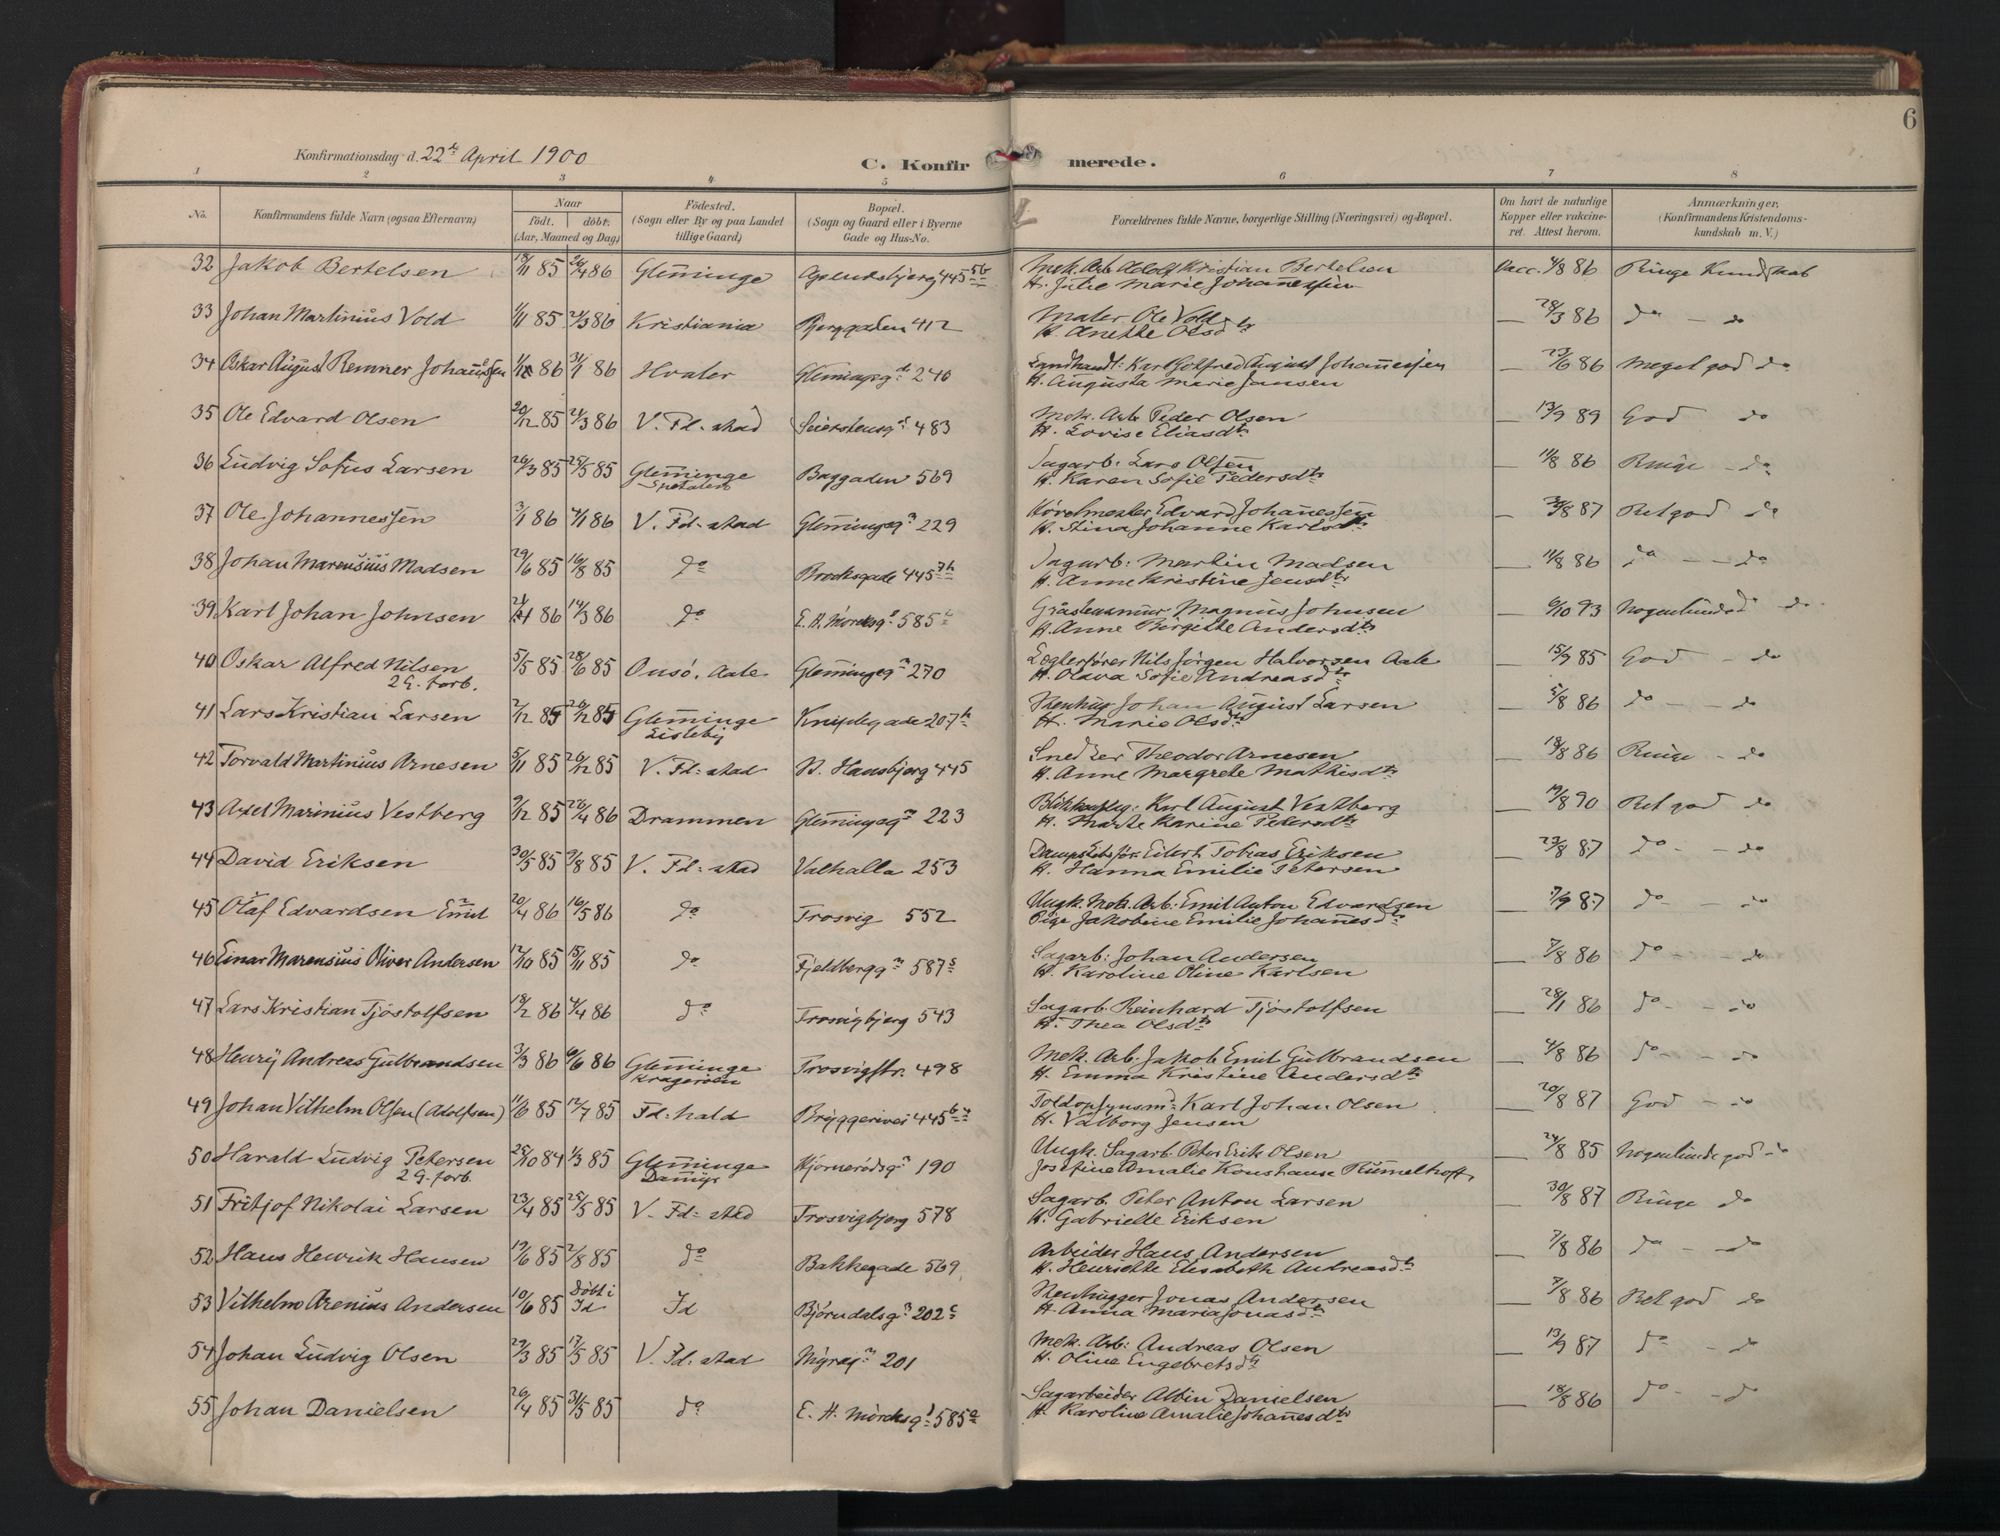 6
Konfirmationsdag d. 22de April 1900
C. Konfirmerede.
1 2 3 4 5 6 7 8
No. Konfirmandens fulde Navn (ogsaa Efternavn) Naar födt. döbt. (Aar, Maaned og Dag) Födested. (Sogn eller By og paa Landet tillige Gaard) Bopæl. (Sogn og Gaard eller i Byerne Gade og Hus-No. Forældrenes fulde Navne, borgerlige Stilling (Næringsvei) og Bopæl. Om havt de naturlige Kopper eller vakcineret. Attest herom. Anmærkninger, (Konfirmandens Kristendomskundskab m. V.)
32 Jakob Bertelsen 18/11 85 26/4 86 Glemminge 445 Mek. Arb. Adolf Kristian Bertelsen Vacc. 4/8 86 Ringe Kundskab
H. Julie Marie Johannessen
33 Johan Martinius Vold 1/11 85 24/3 86 Kristiania Berggaden 412 Maler Ole Vold — 28/3 86 do — do
H. Anette Olsdtr
34 Oskar August Remner Johannessen 86 31/1 86 Hvaler 240 Landhandl: Karl August Johannessen — 23/6 86 Meget god do
H. Augusta Marie Jansen
35 Ole Edvard Olsen 20/12 85 24/3 86 V. Fd.stad 483 Mek. Arb. Peder Olsen — 13/9 89 God do
H. Lovise Eliasdtr
36 Ludvig Sofus Larsen 26/3 85 25/5 85 Glemminge Baggaden 569 Sagarb: Lars Olsen — 11/8 86 Ringe — do
H. Karen Sofie Pedersdtr
37 Ole Johannessen 3/1 86 4/1 86 V. Fd.stad Glemmingeg. 229 Edvard Johannessen — 87 Ret god do
H. Stina Johanne
38 Johan Marensius Madsen 29/6 85 16/8 85 do Brocksgade 445 7b Sagarb: Martin Madsen — 11/8 86 do — do
H. Anne Kristine Jensdtr
39 Karl Johan Johnsen 86 14/3 86 do E. H. Mörcksg. 585 Magnus Johnsen — 6/10 93 Nogenlunde do
H. Anne Birgitte Andersdtr
40 Oskar Alfred Nilsen 5/5 85 28/6 85 Onsö, Aale Glemmingeg. 270 Nils Jörgen Halvorsen Aale — 15/9 85 God — do
2 G. forb. H. Olava Sofie Andreasdtr
41 Lars Kristian Larsen 2/12 85 Glemminge Kniplegade 207 b Stenhug. Johan August Larsen — 5/8 86 do — do
Lisleby H. Marie Olsdtr
42 Torvald Martinius Arnesen 5/11 85 26/12 85 V. Fd.stad St. Hansbjerg 445 Snedker Theodor Arnesen — 18/8 86 Ringe — do
H. Anne Margrete Mathisdtr
43 Axel Marinius Vestberg 9/12 85 86 Drammen Glemmingeg. 223 Karl August Vestberg — 19/8 90 Ret god do
H. Marte Karine Petersdtr
44 David Eriksen 30/5 85 9/8 85 V. Fd.stad Valhalla 253 Eilert Tobias Eriksen — 23/8 87 do — do
H. Hanna Emilie Petersen
45 Olaf Edvardsen Emil 20/4 86 16/5 86 do Trosvig 552 Ungk. Mek. Arb. Emil Anton Edvardsen — 7/9 87 do — do
Pige Jakobine Emilie Johannesdtr
46 Einar Marensius Oliver Andersen 12/10 85 15/11 85 do Fjeldbergg. 587 Sagarb: Johan Andersen — 7/8 86 do — do
H. Karoline Oline Karlsen
47 Lars Kristian Tjöstolfsen 18/2 86 4/4 86 do Trosvigbjerg 543 Sagarb. Reinhard Tjöstolfsen — 28/1 86 do — do
H. Thea Olsdtr
48 Henry Andreas Gulbrandsen 3/3 86 6/6 86 Glemminge Trosvigstr. 498 Mek. Arb. Jakob Emil Gulbrandsen — 4/8 86 do — do
Krageröen H. Emma Kristine Andersdtr
49 Johan Vilhelm Olsen (Adolfsen) 11/6 85 12/7 85 Fd:hald Bryggerivei 445 Toldopsynsm: Karl Johan Olsen — 20/8 87 God — do
H. Valborg Jensen
50 Harald Ludvig Petersen 25/10 84 1/3 85 Glemminge Hjörnerödsg. 190 Ungk. Sagarb. Peter Erik Olsen — 24/8 85 Nogenlunde god do
2 G. forb. Dammyr Josefine Amalie Konstanse Rummelhoff
51 Fritjof Nikolai Larsen 23/4 85 25/5 85 V. Fd.stad Trosvigbjerg 578 Sagarb. Peter Anton Larsen — 30/8 87 Ringe do
H. Gabrielle Eriksen
52 Hans Henrik Hansen 19/6 85 2/8 85 do Bakkegade 569 Arbeider Hans Andersen — 7/8 86 do — do
H. Henriette Elisabeth Andreasdtr
53 Vilhelm Arenius Andersen 10/6 85 Döbt i Id Id Björndalsg. 202 c Stenhugger Jonas Andersen — 7/8 86 Ret god do
H. Anna Maria Jonasdtr
54 Johan Ludvig Olsen 29/3 85 17/5 85 V. Fd.stad Myrag. 201 Mek. Arb: Andreas Olsen — 13/9 87 do — do
H. Oline Engebretsdtr
55 Johan Danielsen 26/4 85 31/5 85 do E. H. Mörcksg. 585 a Sagarbeider Albin Danielsen — 18/8 86 do — do
H. Karoline Amalie Johannesdtr